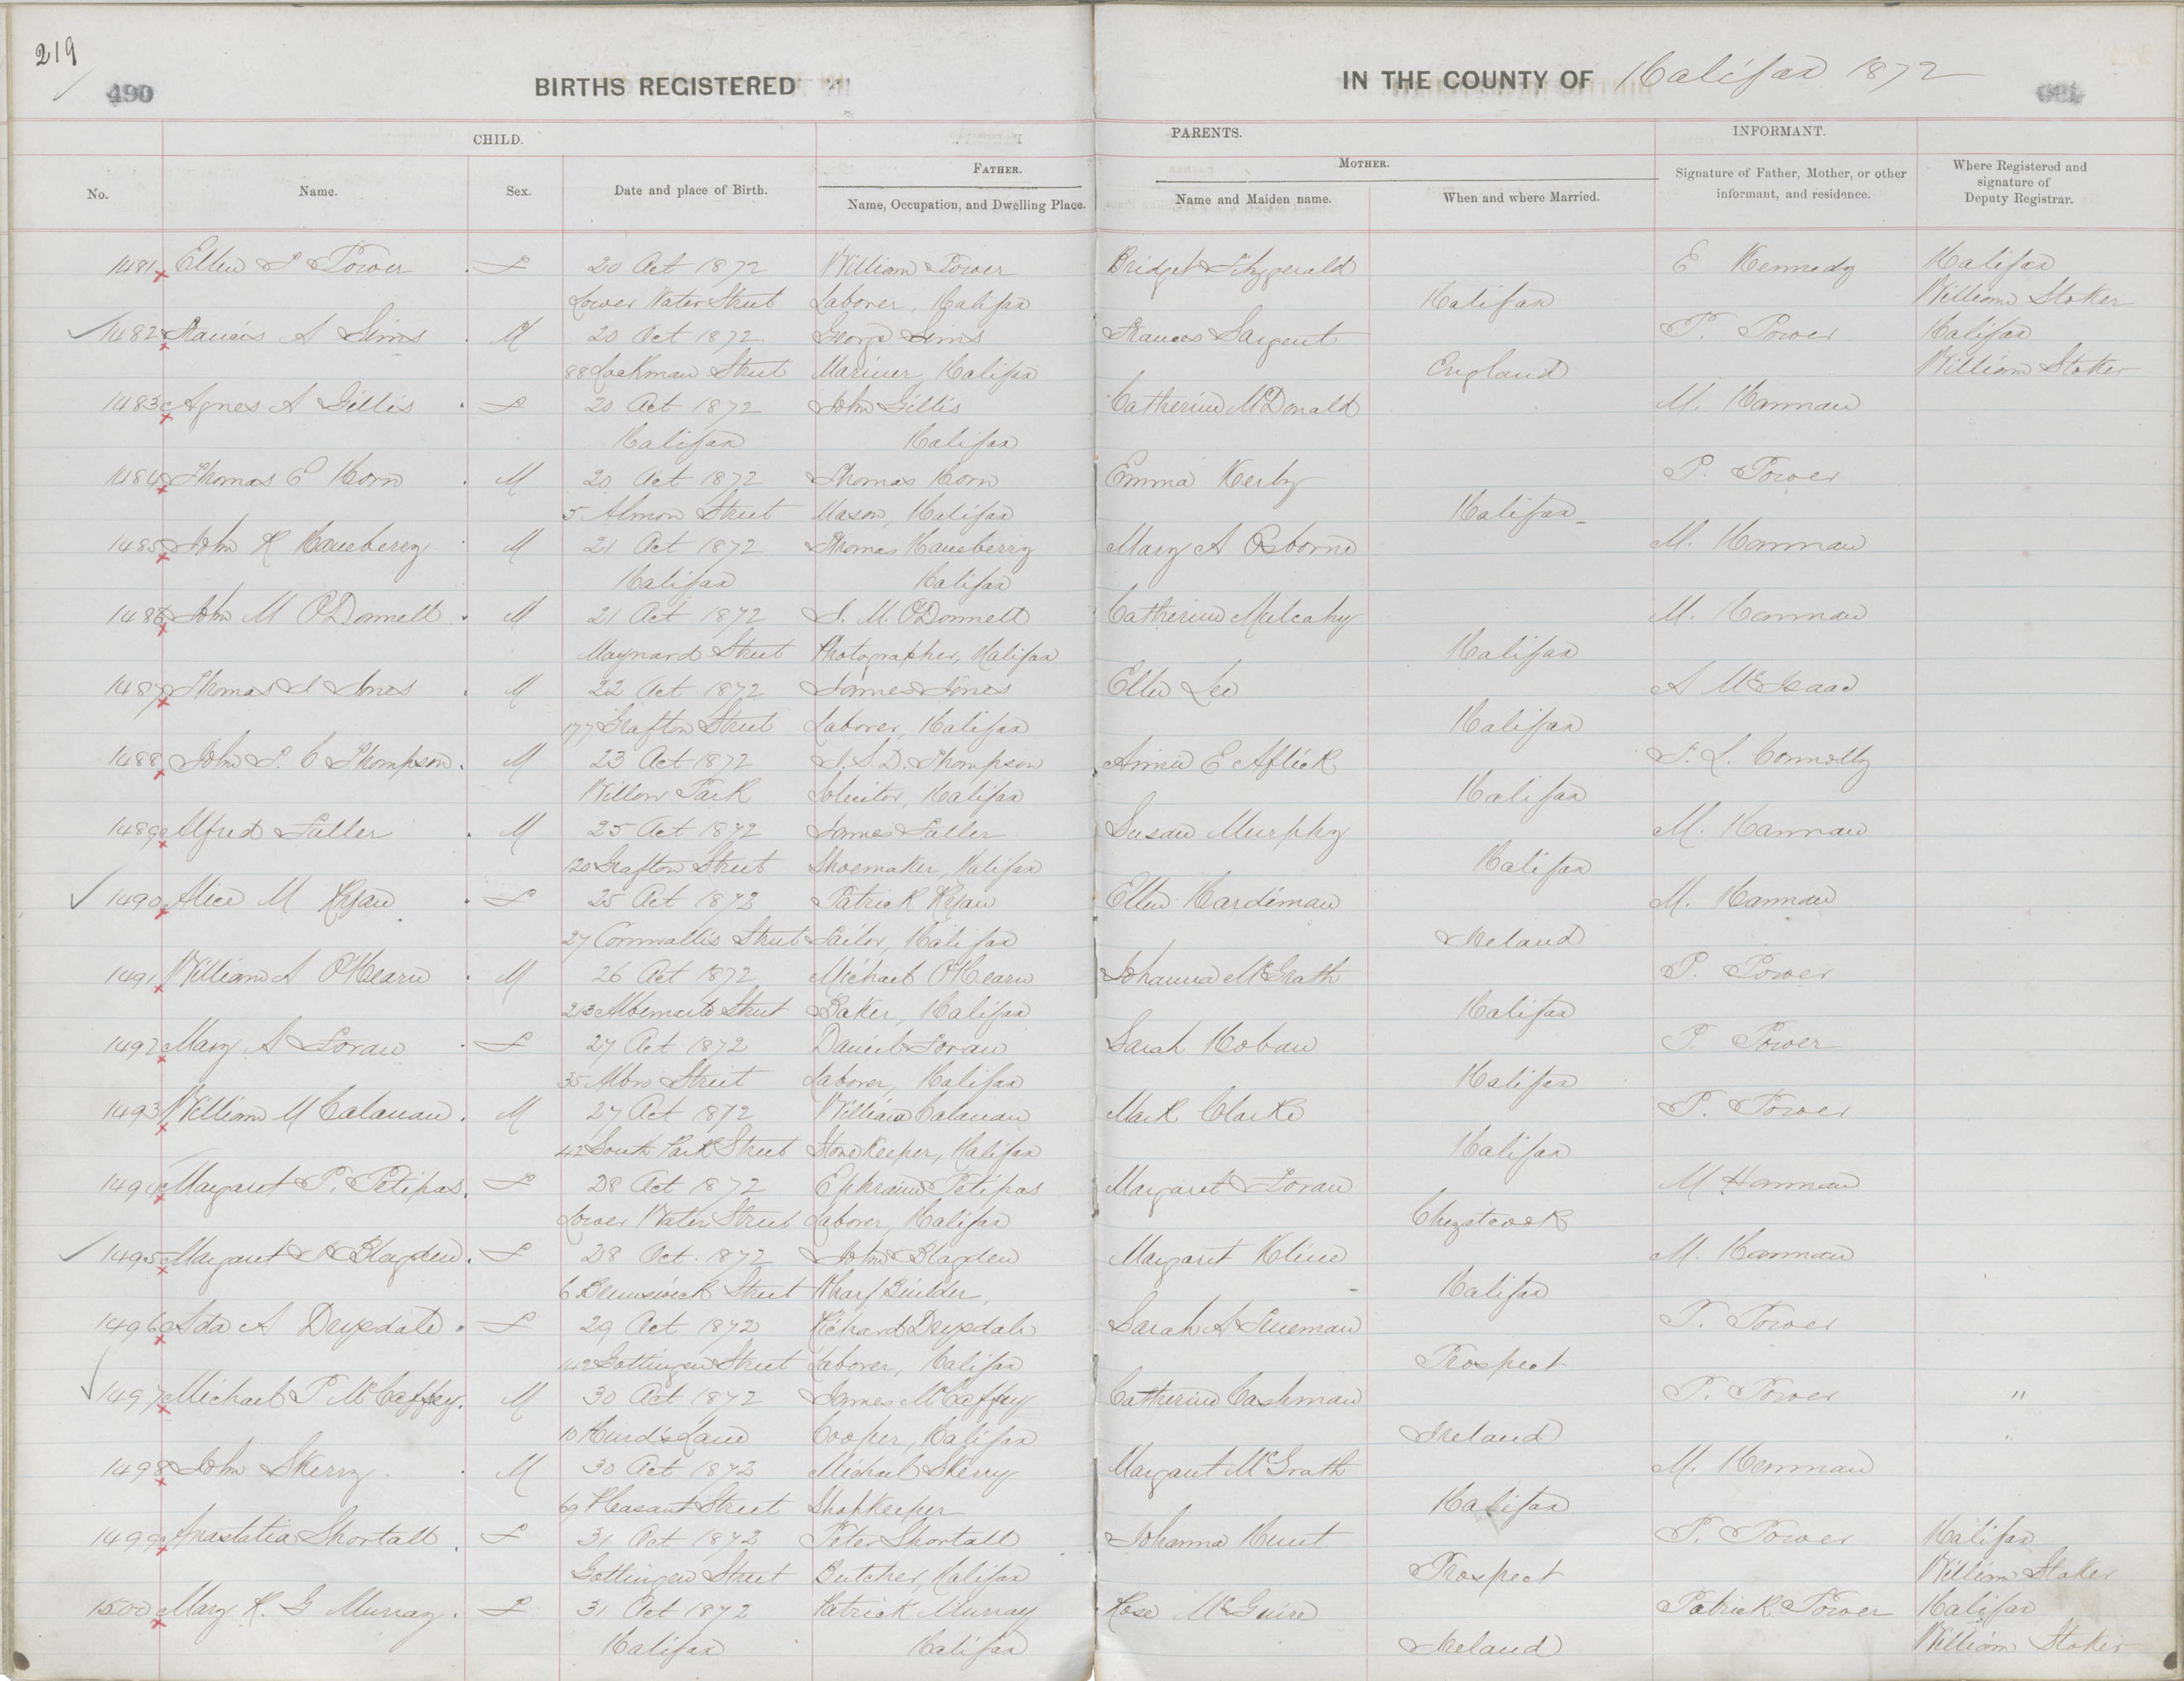 219
490
BIRTHS REGISTERED
IN THE COUNTY OF Halifax 1872
CHILD.
PARENTS.
INFORMANT.
FATHER.
MOTHER.
No. Name. Sex. Date and place of Birth. Name, Occupation, and Dwelling Place. Name and Maiden name. When and where Married. Signature of Father, Mother, or other informant, and residence. Where Registered and signature of Deputy Registrar.
1481 Ellen Power F 20 Oct 1872 William Power Bridget Fitzgerald E Kennedy Halifax
Lower Water Street Laborer, Halifax Halifax William Stoker
1482 Francis A Sims M 20 Oct 1872 George Sims Frances Sargent P. Power Halifax
88 Lockman Street Mariner, Halifax England William Stoker
1483 Agnes A Gillis F 20 Oct 1872 John Gillis Catherine McDonald M. Hannan
Halifax Halifax
1484 Thomas E Horn M 20 Oct 1872 Thomas Horn Emma Kerby P. Power
5 Almon Street Mason, Halifax Halifax
1485 John R Haneberry M 21 Oct 1872 Thomas Haneberry Mary A Osborne M. Hannan
Halifax Halifax
1486 John M O'Donnell M 21 Oct 1872 J. M. O'Donnell Catherine Mulcahy M. Hannan
Maynard Street Photographer, Halifax Halifax
1487 Thomas J Jones M 22 Oct 1872 James Jones Ellen Lee A McIsaac
177 Grafton Street Laborer, Halifax Halifax
1488 John T. C Thompson M 23 Oct 1872 J. S. D. Thompson Annie E Afleck T. L. Connolly
Willow Park Solicitor, Halifax Halifax
1489 Alfred Fuller M 25 Oct 1872 James Fuller Susan Murphy M. Hannan
120 Grafton Street Shoemaker, Halifax Halifax
1490 Alice M Ryan F 25 Oct 1872 Patrick Ryan Ellen Hardiman M. Hannan
27 Cornwallis Street Tailor, Halifax Ireland
1491 William A O'Hearn M 26 Oct 1872 Michael O'Hearn Johanna McGrath P. Power
213 Albemarle Street Baker, Halifax Halifax
1492 Mary A Foran F 27 Oct 1872 Daniel Foran Sarah Hoban P. Power
35 Albro Street Laborer, Halifax Halifax
1493 William M Calanan M 27 Oct 1872 William Calanan Mark Clarke P. Power
42 South Park Street Store Keeper, Halifax Halifax
1494 Margaret P. Petipas F 28 Oct 1872 Ephraim Petipas Margaret Foran M Hannan
Lower Water Street Laborer, Halifax Chezetcook
1495 Margaret Blagden F 28 Oct. 1872 John Blagden Margaret Kline M. Hannan
6 Brunswick Street Wharf Builder, Halifax
1496 Ada A Drysdale F 29 Oct 1872 Richard Drysdale Sarah A Trueman P. Power
142 Gottingen Street Laborer, Halifax Prospect
1497 Michael P McCaffrey M 30 Oct 1872 James McCaffrey Catherine Cashman P. Power "
10 Hurd's Lane Cooper, Halifax Ireland "
1498 John Skerry M 30 Oct 1872 Michael Skerry Margaret McGrath M. Hannan
69 Pleasant Street Shopkeeper Halifax
1499 Anastatia Shortall F 31 Oct 1872 Peter Shortall Johanna Hunt P. Power Halifax
Gottingen Street Butcher, Halifax Prospect William Stoker
1500 Mary R. G Murray F 31 Oct 1872 Patrick Murray Rose McGuire Patrick Power Halifax
Halifax Halifax Ireland William Stoker